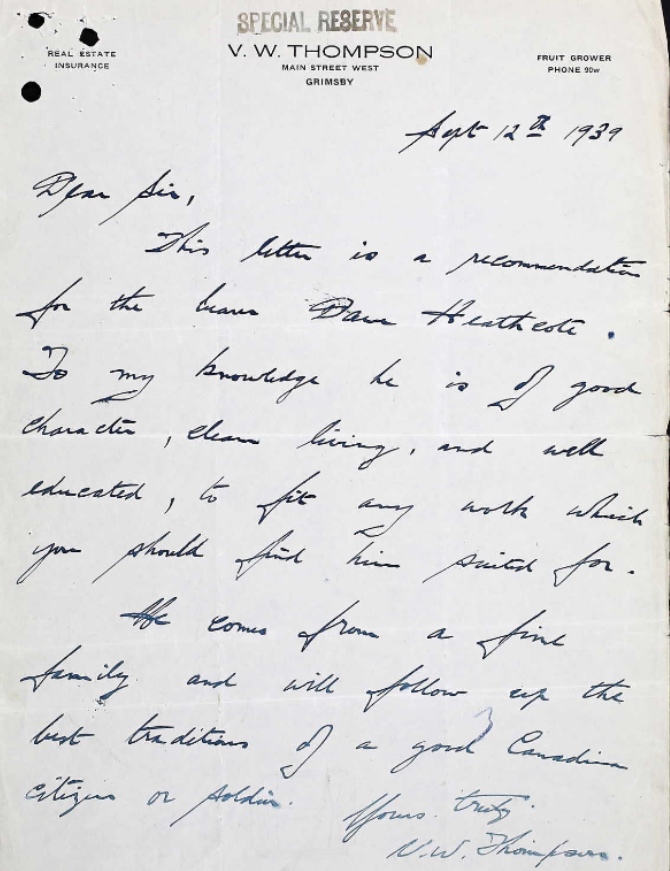 SPECIAL RESERVE
REAL ESTATE
INSURANCE
V. W. THOMPSON
MAIN STREET WEST
GRIMSBY
FRUIT GROWER
PHONE 90w
Sept 12th 1939
Dear Sir,
This letter is a recommendation
for the bearer Dave Heathcote.
To my knowledge he is of good
character, clean living, and well
educated, to fit any work which
you should find him suited for.
He comes from a fine
family and will follow up the
best traditions of a good Canadian
citizen or soldier.
Yours truly.
V.W. Thompson.